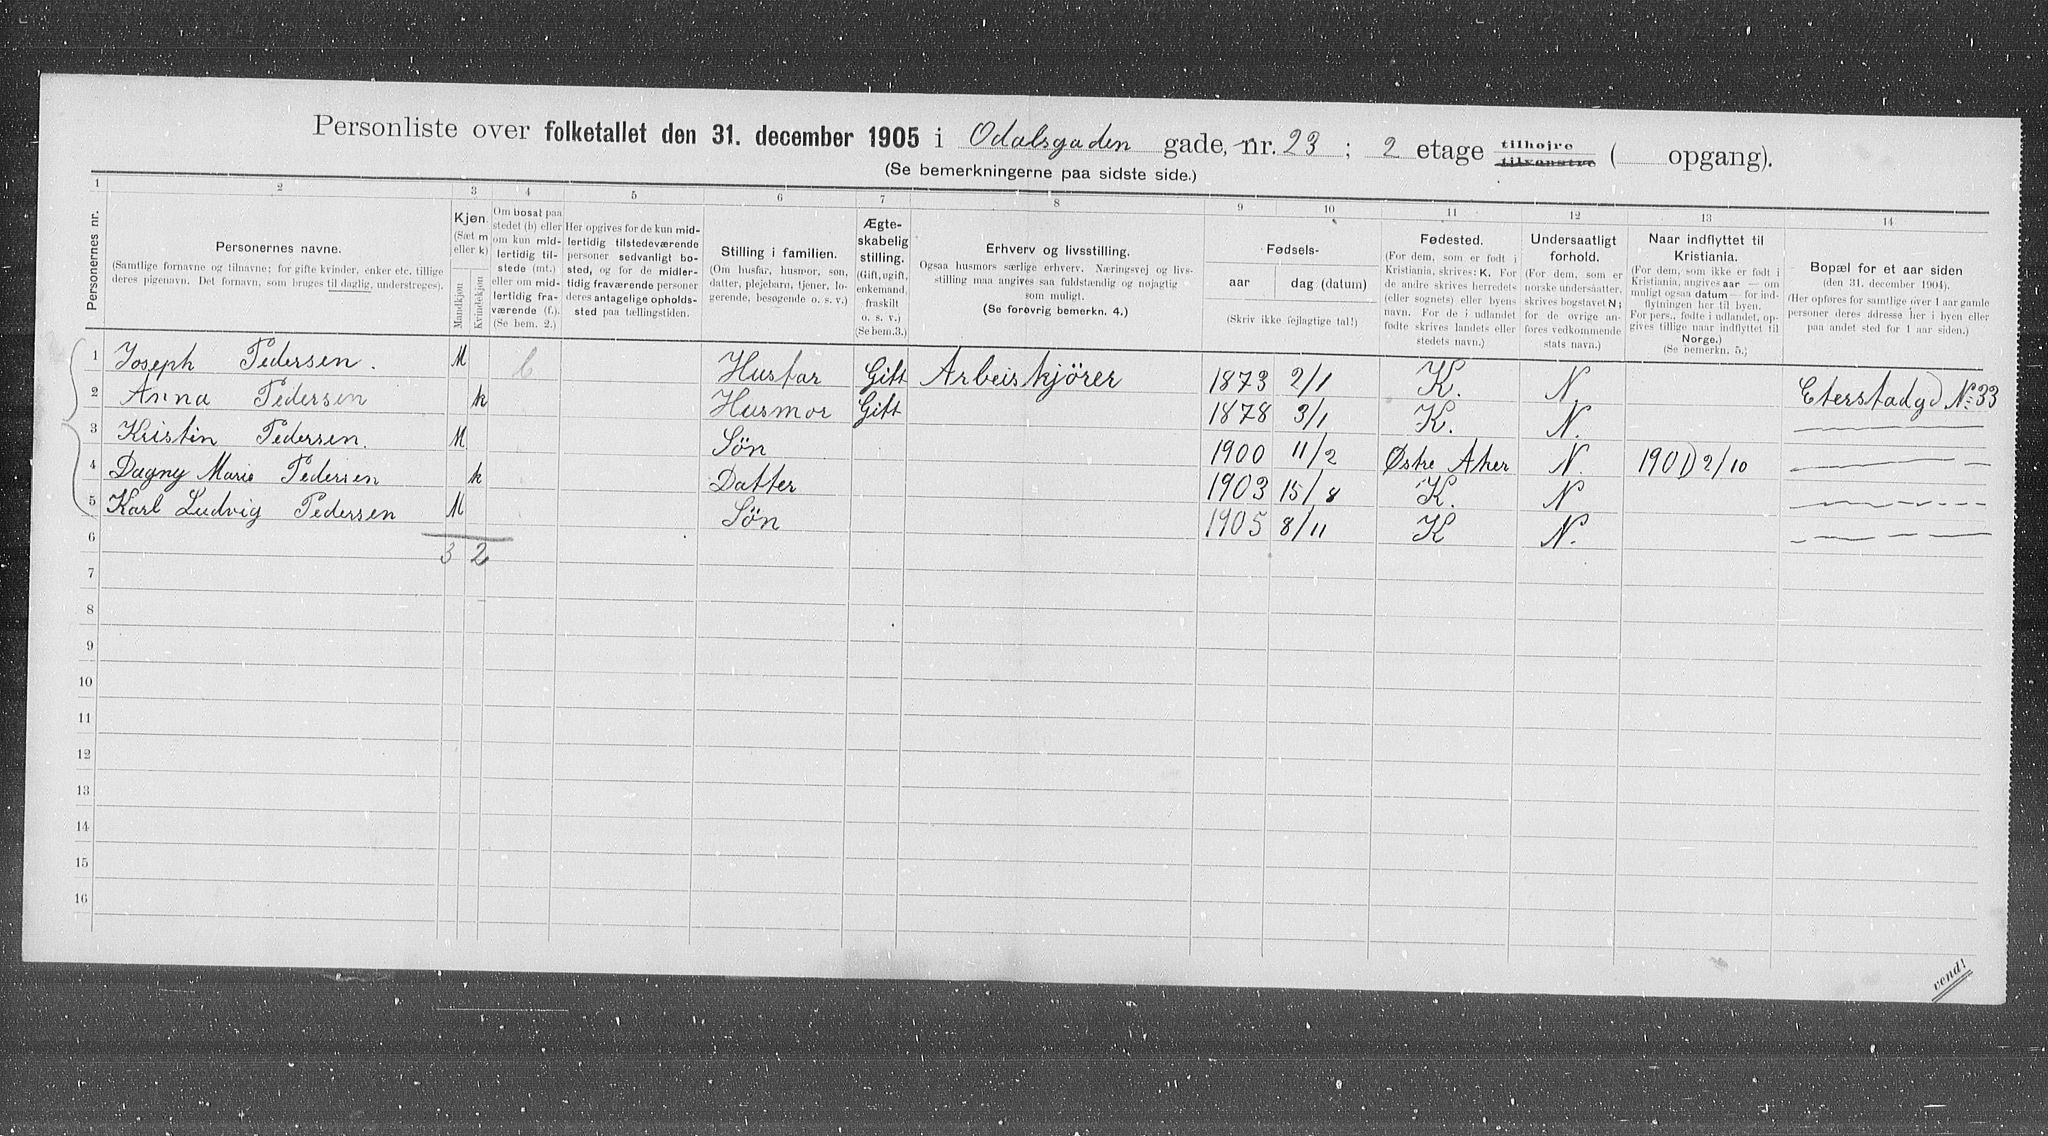 Personliste over folketallet den 31. december 1905 i Odalsgaden gade, nr. 23 ; 2 etage tilhøjre tilvenstre ( opgang).
(Se bemerkningerne paa sidste side.)
1 2 3 4 5 6 7 8 9 10 11 12 13 14
Personernes nr.
Personernes navne.
(Samtlige fornavne og tilnavne; for gifte kvinder, enker etc. tillige
deres pigenavn. Det fornavn, som bruges til daglig, understreges).
Kjøn.
(Sæt m
eller k)
Mandkjøn
Kvindekjøn
Om bosat paa
stedet (b) eller
om kun mid-
lertidig til-
stede (mt.)
eller om mid-
lertidig fra-
værende (f.).
(Se bem. 2.)
Her opgives for de kun mid-
lertidig tilstedeværende
personer sedvanligt bo-
sted, og for de midler-
tidig fraværende personer
deres antagelige opholds-
sted paa tællingstiden.
Stilling i familien.
(Om husfar, husmor, søn,
datter, plejebarn, tjener, lo-
gerende, besøgende o. s. v.)
Ægte-
skabelig
stilling.
(Gift, ugift,
enkemand,
fraskilt
o. s. v.)
(Se bem. 3.)
Erhverv og livsstilling.
Ogsaa husmors særlige erhverv. Næringsvej og livs-
stilling maa angives saa fuldstændig og nøjagtig
som muligt.
(Se forøvrig bemerkn. 4.)
Fødsels-
aar dag (datum)
(Skriv ikke fejlagtige tal!)
Fødested.
(For dem, som er født i
Kristiania, skrives: K. For
de andre skrives herredets
(eller sognets) eller byens
navn. For de i udlandet
fødte skrives landets eller
stedets navn.)
Undersaatligt
forhold.
(For dem, som er
norske undersaatter,
skrives bogstavet N;
for de øvrige an-
føres vedkommende
stats navn.)
Naar indflyttet til
Kristiania.
(For dem, som ikke er født i
Kristiania, angives aar — om
muligt ogsaa datum — for ind-
flytningen her til byen.
For pers., fødte i udlandet, op-
gives tillige naar indflyttet til
Norge.)
(Se bemerkn. 5.)
Bopæl for et aar siden
(den 31. december 1904).
(Her opføres for samtlige over 1 aar gamle
personer deres adresse her i byen eller
paa andet sted for 1 aar siden.)
1 Joseph Pedersen. M b Husfar Gift Arbeiskjörer 1873 2/1 K. N. Eterstadgd No 33
2 Anna Pedersen k Husmor Gift 1878 3/1 K. N. —
3 Kristin Pedersen. M Søn 1900 11/2 Østre Aker N. 1901) 2/10 —
4 Dagny Marie Pedersen k Datter 1903 15/8 K. N —
5 Karl Ludvig Pedersen M Søn 1905 8/11 K N. —
6 3 2
7
8
9
10
11
12
13
14
15
16
vend!